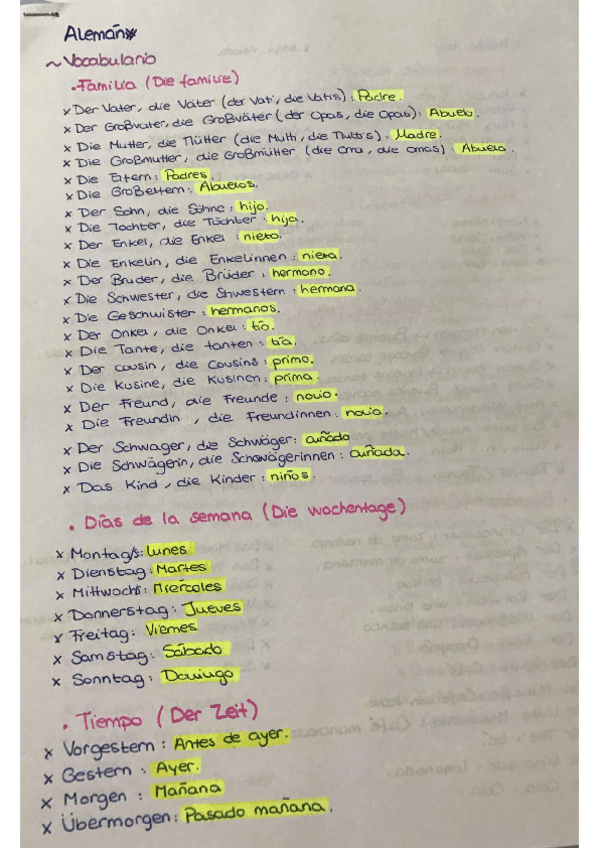 Alemán
~ Vocabulario
• Familia (Die familie)
x Der Vater, die Väter (der Vati, die Vatis) : Padre.
x Der Großvater, die Großväter (der Opas, die Opas) : Abuelo.
x Die Mutter, die Mütter (die Mutti, die Muttis) : Madre.
x Die Großmutter, die Großmütter (die Oma, die omas) : Abuela.
x Die Eltern : Padres.
x Die Großeltern : Abuelos.
x Der Sohn, die Söhne : hijo.
x Die Tochter, die Töchter : hija.
x Der Enkel, die Enkel : nieto.
x Die Enkelin, die Enkelinnen : nieta.
x Der Bruder, die Brüder : hermano.
x Die Schwester, die Shwestern : hermana.
x Die Geschwister : hermanos.
x Der Onkel, die Onkel : tío.
x Die Tante, die tanten : tía.
x Der cousin, die Cousins : primo.
x Die Kusine, die Kusinen : prima.
x Der Freund, die Freunde : novio.
x Die Freundin, die Freundinnen : novia.
x Der Schwager, die Schwäger : cuñado
x Die Schwägerin, die Schwägerinnen : cuñada.
x Das Kind, die Kinder : niños.
• Días de la semana (Die wochentage)
x Montag/s: Lunes
x Dienstag : Martes
x Mittwochs : Miércoles
x Donnerstag : Jueves
x Freitag : Viernes
x Samstag : Sábado
x Sonntag : Domingo
• Tiempo (Der Zeit)
x Vorgestern : Antes de ayer.
x Gestern : Ayer.
x Morgen : Mañana
x Übermorgen : Pasado mañana.